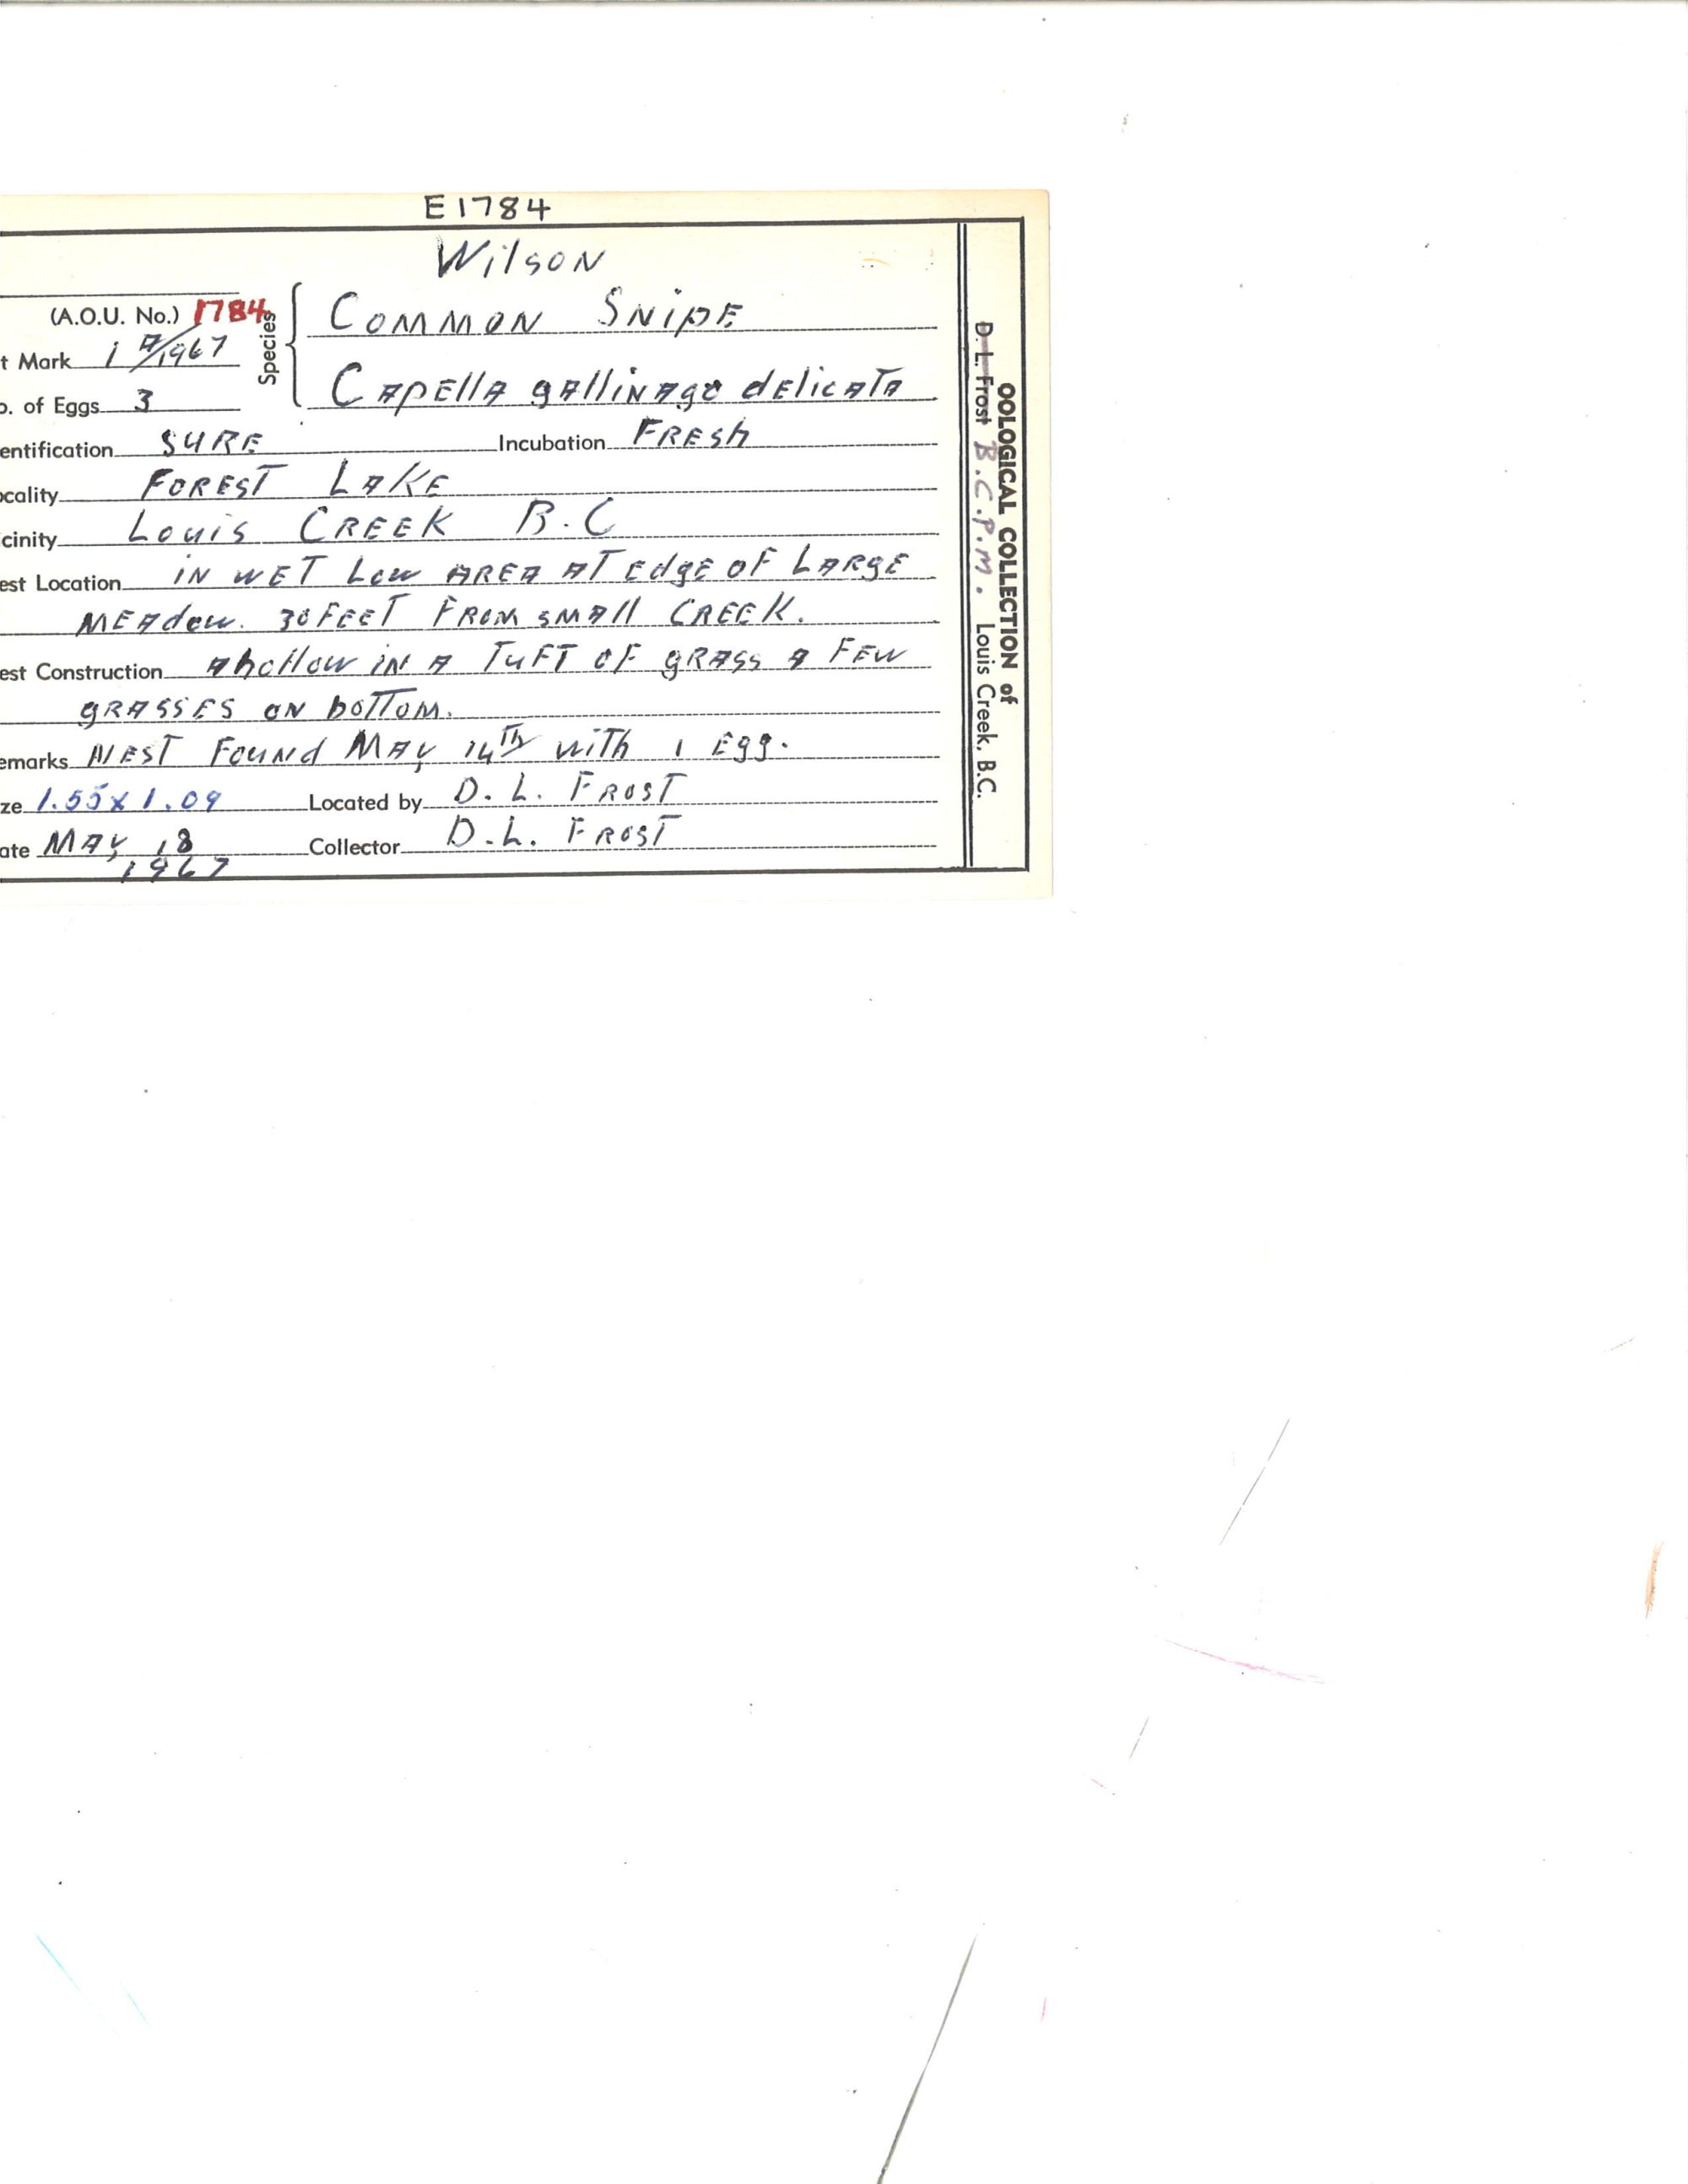 E1784
Wilson
(A.O.U. No.) 1784
Species
Common Snipe
t Mark 1 A/1967
Capella gallinago delicata
o. of Eggs 3
entification SURE Incubation FRESH
ocality FOREST LAKE
cinity Louis CREEK B.C
est Location IN WET Low AREA AT EdgE OF LARgE
MEAdow. 30 FEET FROM SMAll CREEK.
est Construction A hollow IN A TuFT OF gRASS A FEW
gRASSES ON boTTOM.
emarks NEST Found MAY 14Th wiTh 1 Egg.
ze 1.55 x 1.09 Located by D. L. FROST
ate MAY 18 Collector D.L. FROST
1967
OOLOGICAL COLLECTION of
D. L. Frost B.C.P.M. Louis Creek, B.C.